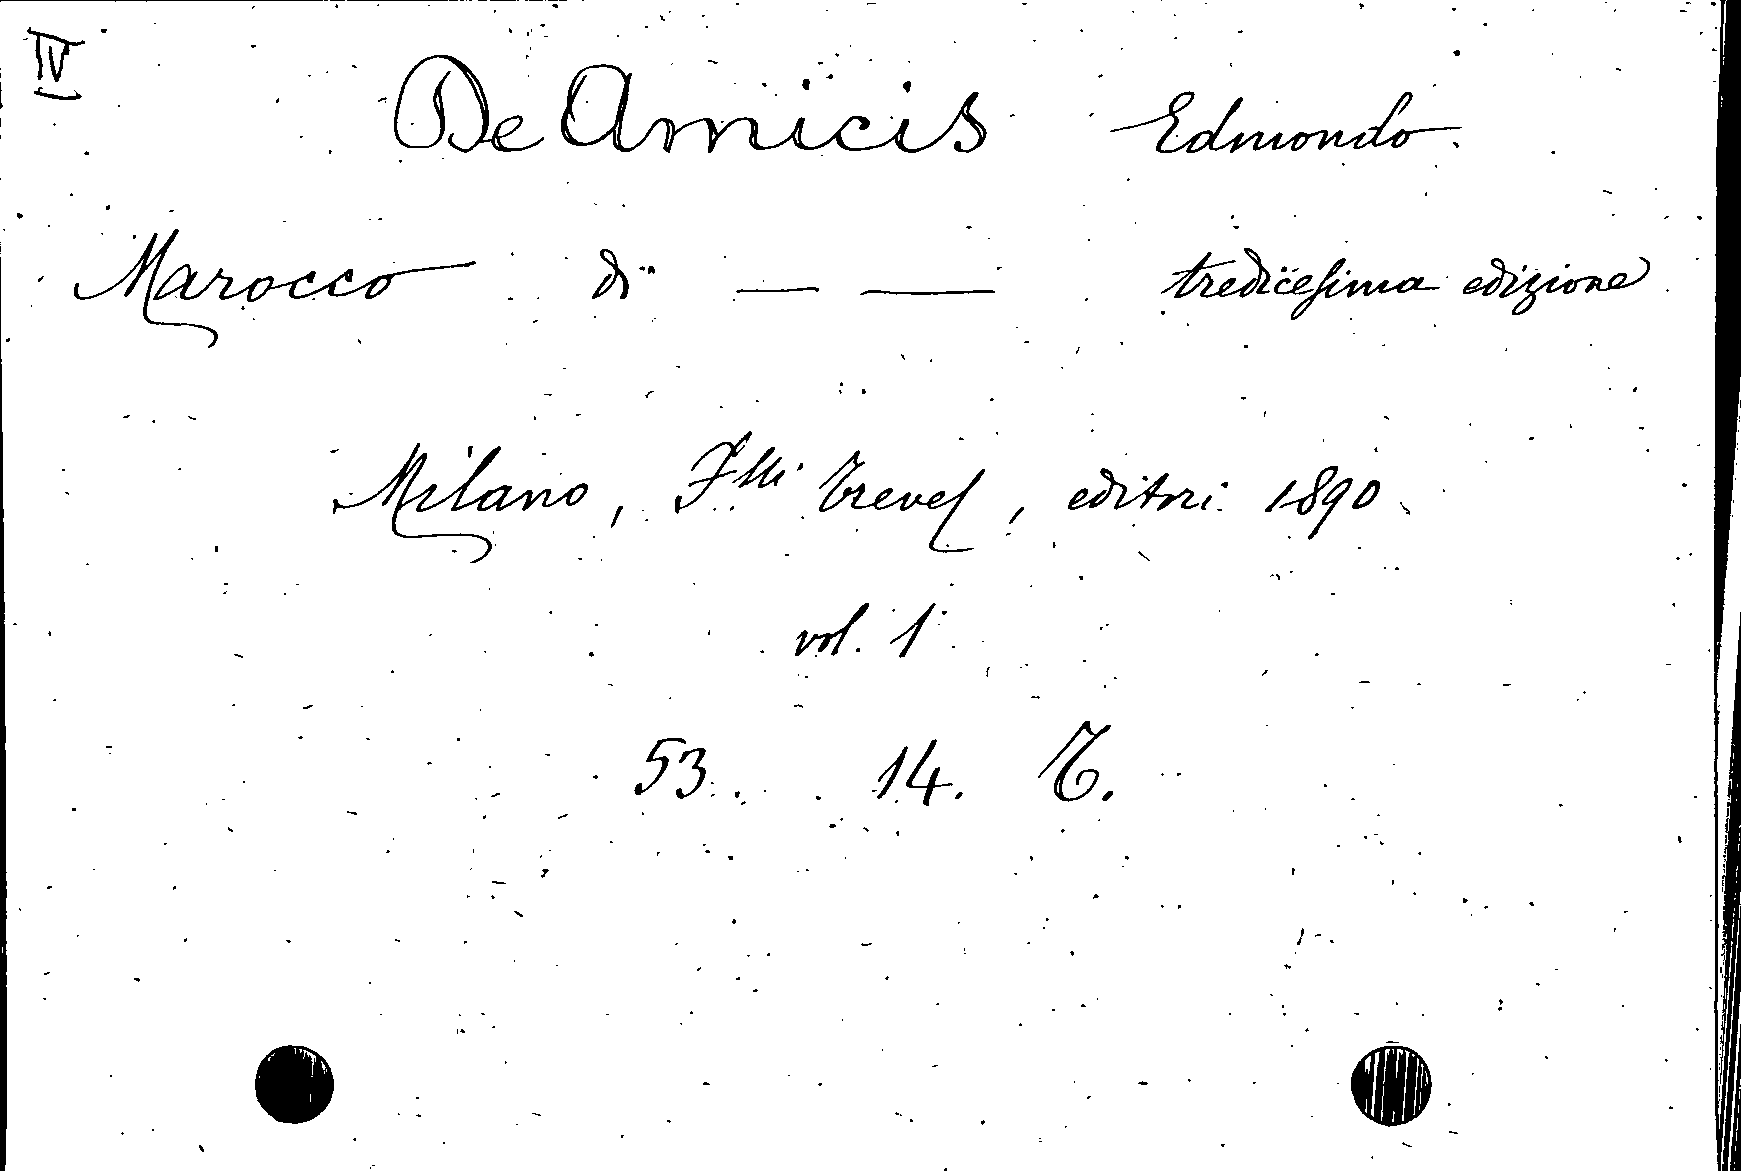 IV
De Amicis Edmondo.
Marocco di — — tredicesima edizione
Milano, Flli Treves, editori 1890
vol. 1
53. 14. T.